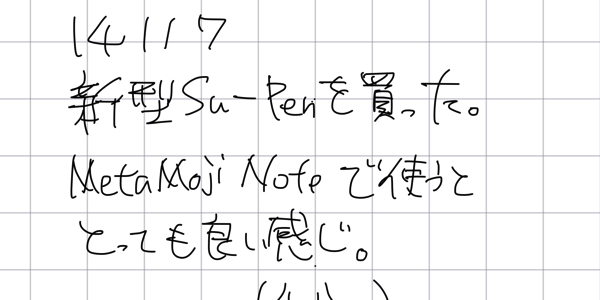 14 11 7
新型Su-Penを買った。
MetaMoji Noteで使うと
とっても良い感じ。